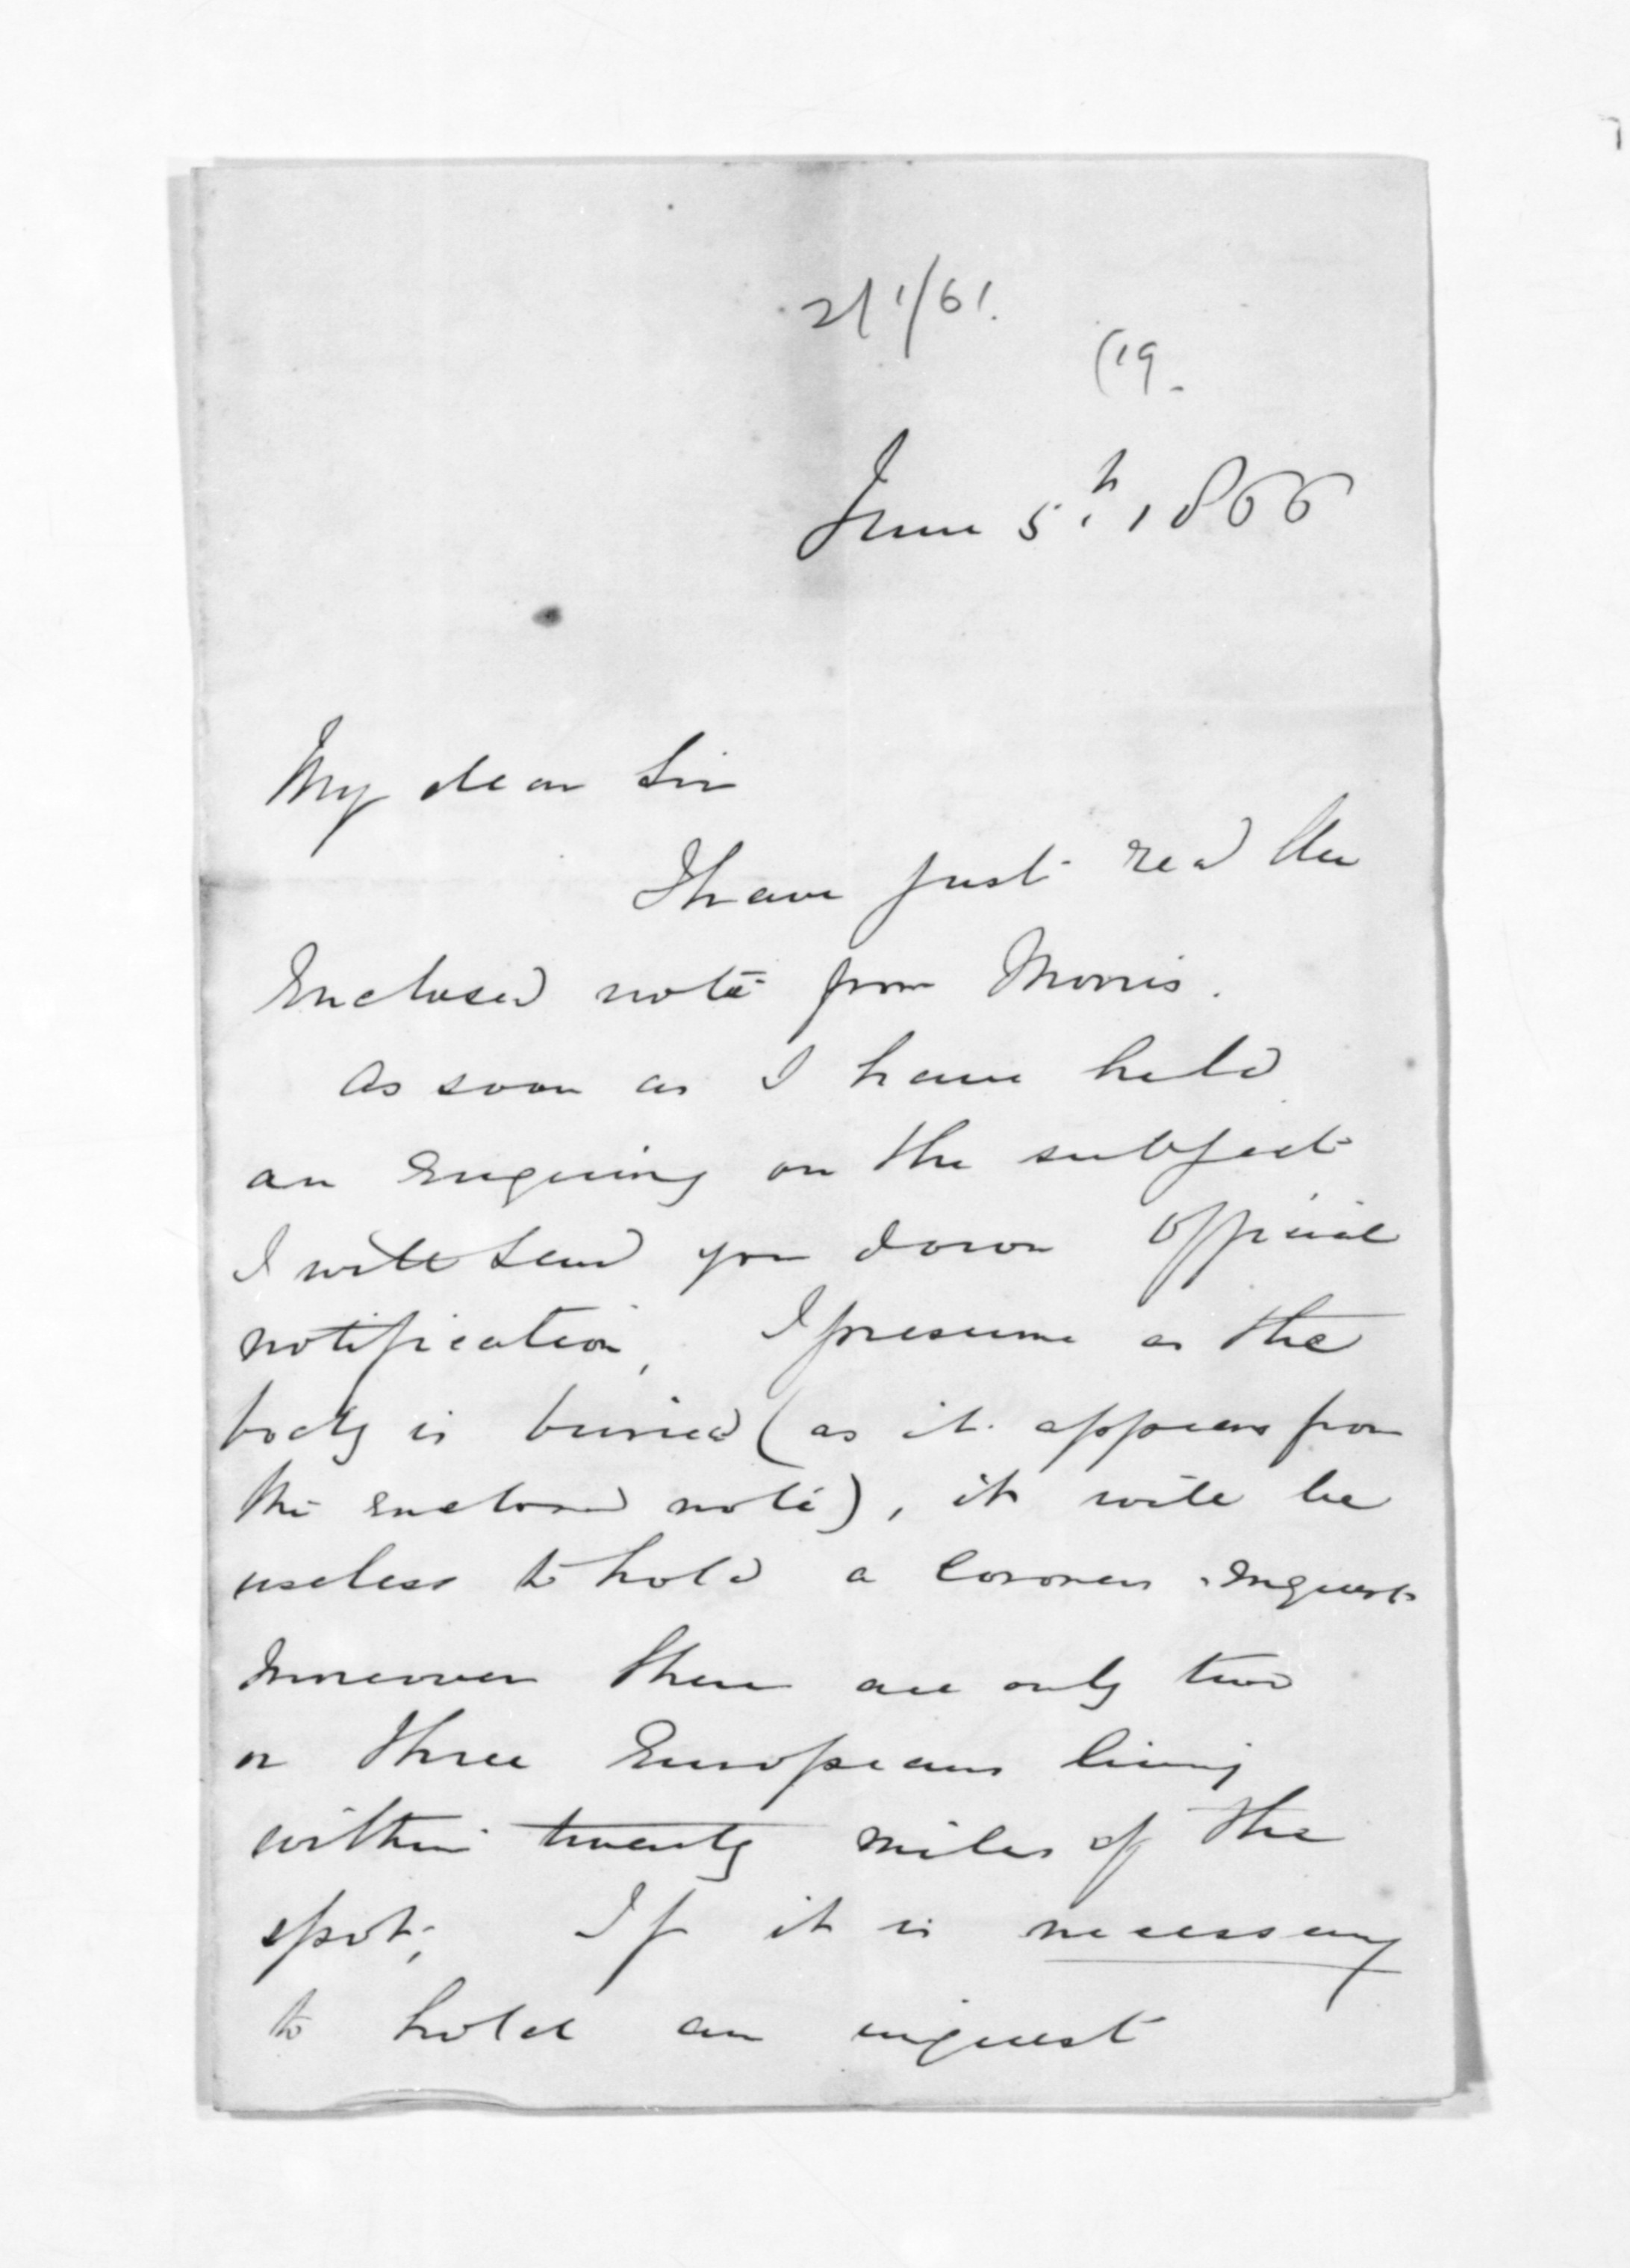 21/1/61.
(19.
June 5th. 1866
My dear Sir
I have just read the
Enclosed note from Morris.
As soon as I have held
an Enquiry on the subject
I will send you down Official
notification, I presume as the
body is buried (as it appears from
the enclosed note), it will be
useless to hold a Coroners Inquest
moreover there are only two
or three Europeans living
within twenty miles of the
spot; If it is necessary
to hold an inquest